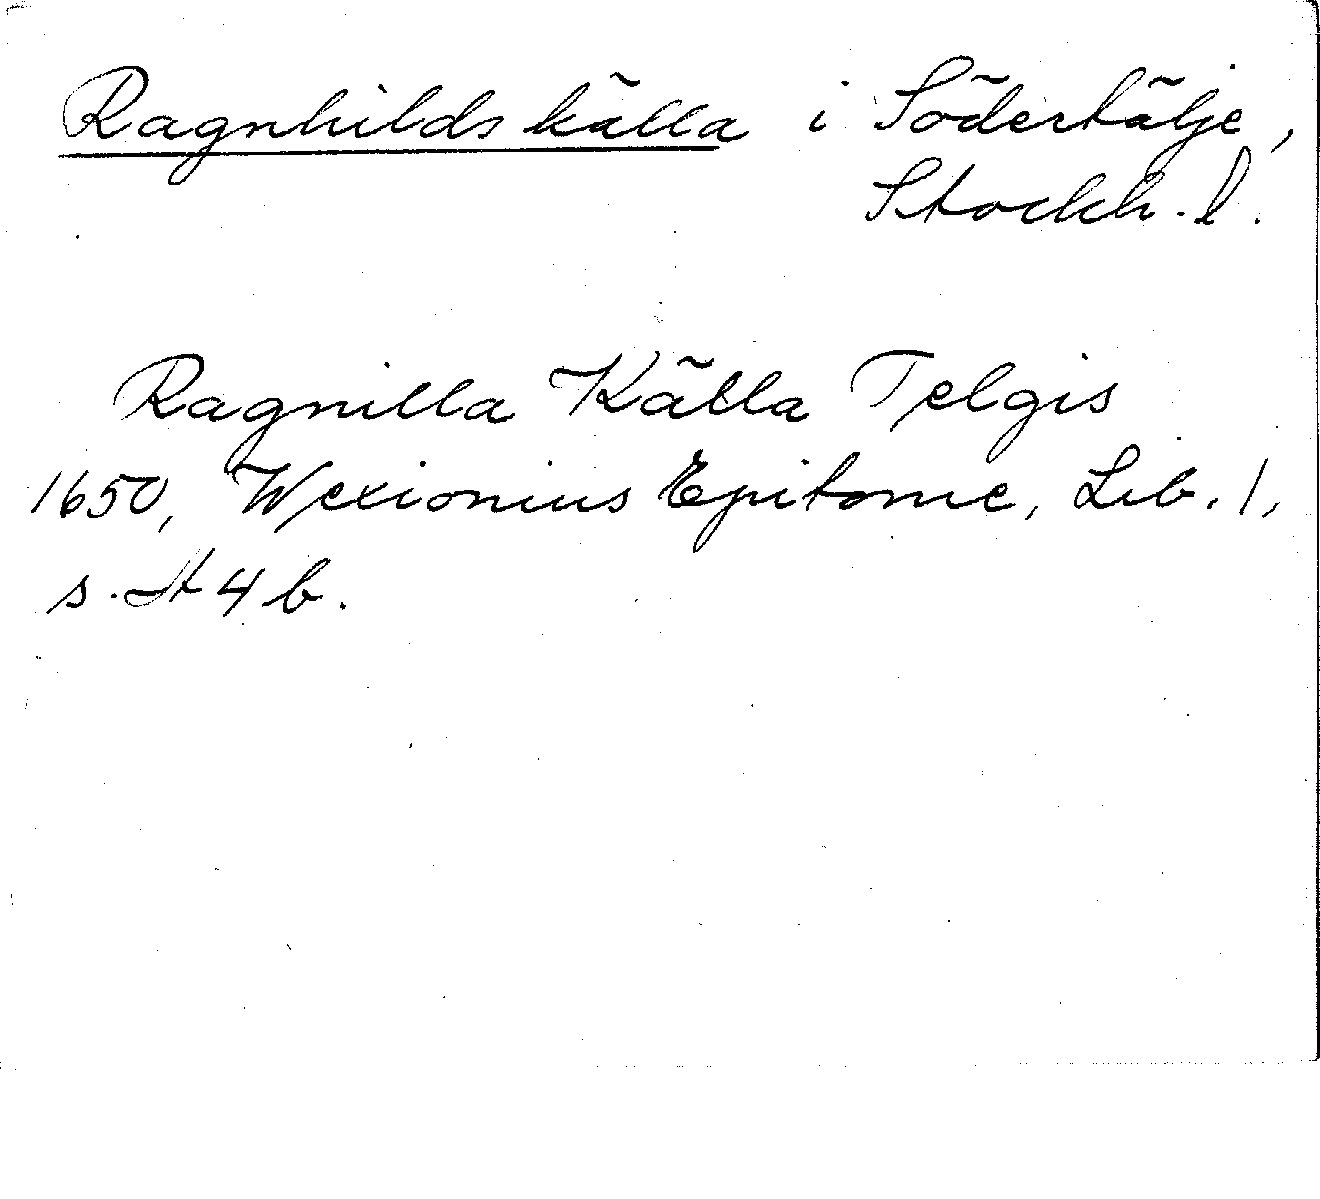 Ragnhilds källa i Södertälje,
Stockh. l.
Ragnilla Källa Telgis
1650, Wexionius Epitome, Lib. 1,
s. A 4 b.